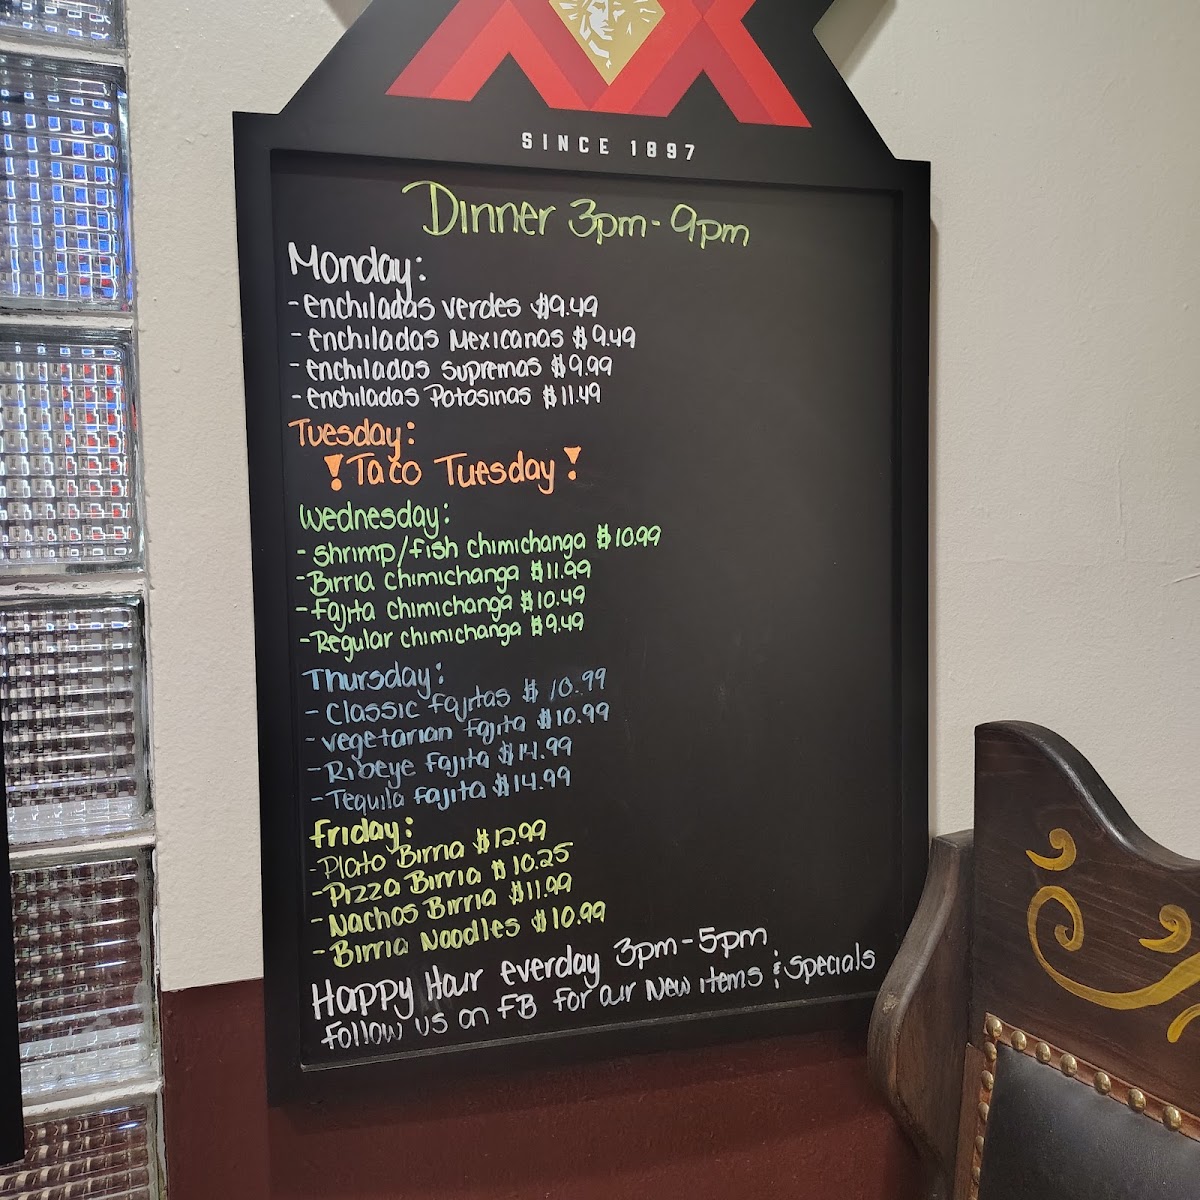 XX
SINCE 1897
Dinner 3pm-9pm
Monday:
-enchiladas verdes $9.49
-enchiladas Mexicanas $9.49
-enchiladas supremas $9.99
-enchiladas Potosinas $11.49
Tuesday:
!Taco Tuesday!
Wednesday:
-shrimp/fish chimichanga $10.99
-Birria chimichanga $11.99
-Fajita chimichanga $10.49
-Regular chimichanga $9.49
Thursday:
-Classic Fajitas $10.99
-vegetarian Fajita $10.99
-Ribeye Fajita $14.99
-Tequila Fajita $14.99
Friday:
-Plato Birria $12.99
-Pizza Birria $10.25
-Nachos Birria $11.99
-Birria Noodles $10.99
Happy Haur everday 3pm-5pm
Follow us on FB for aur New items & specials